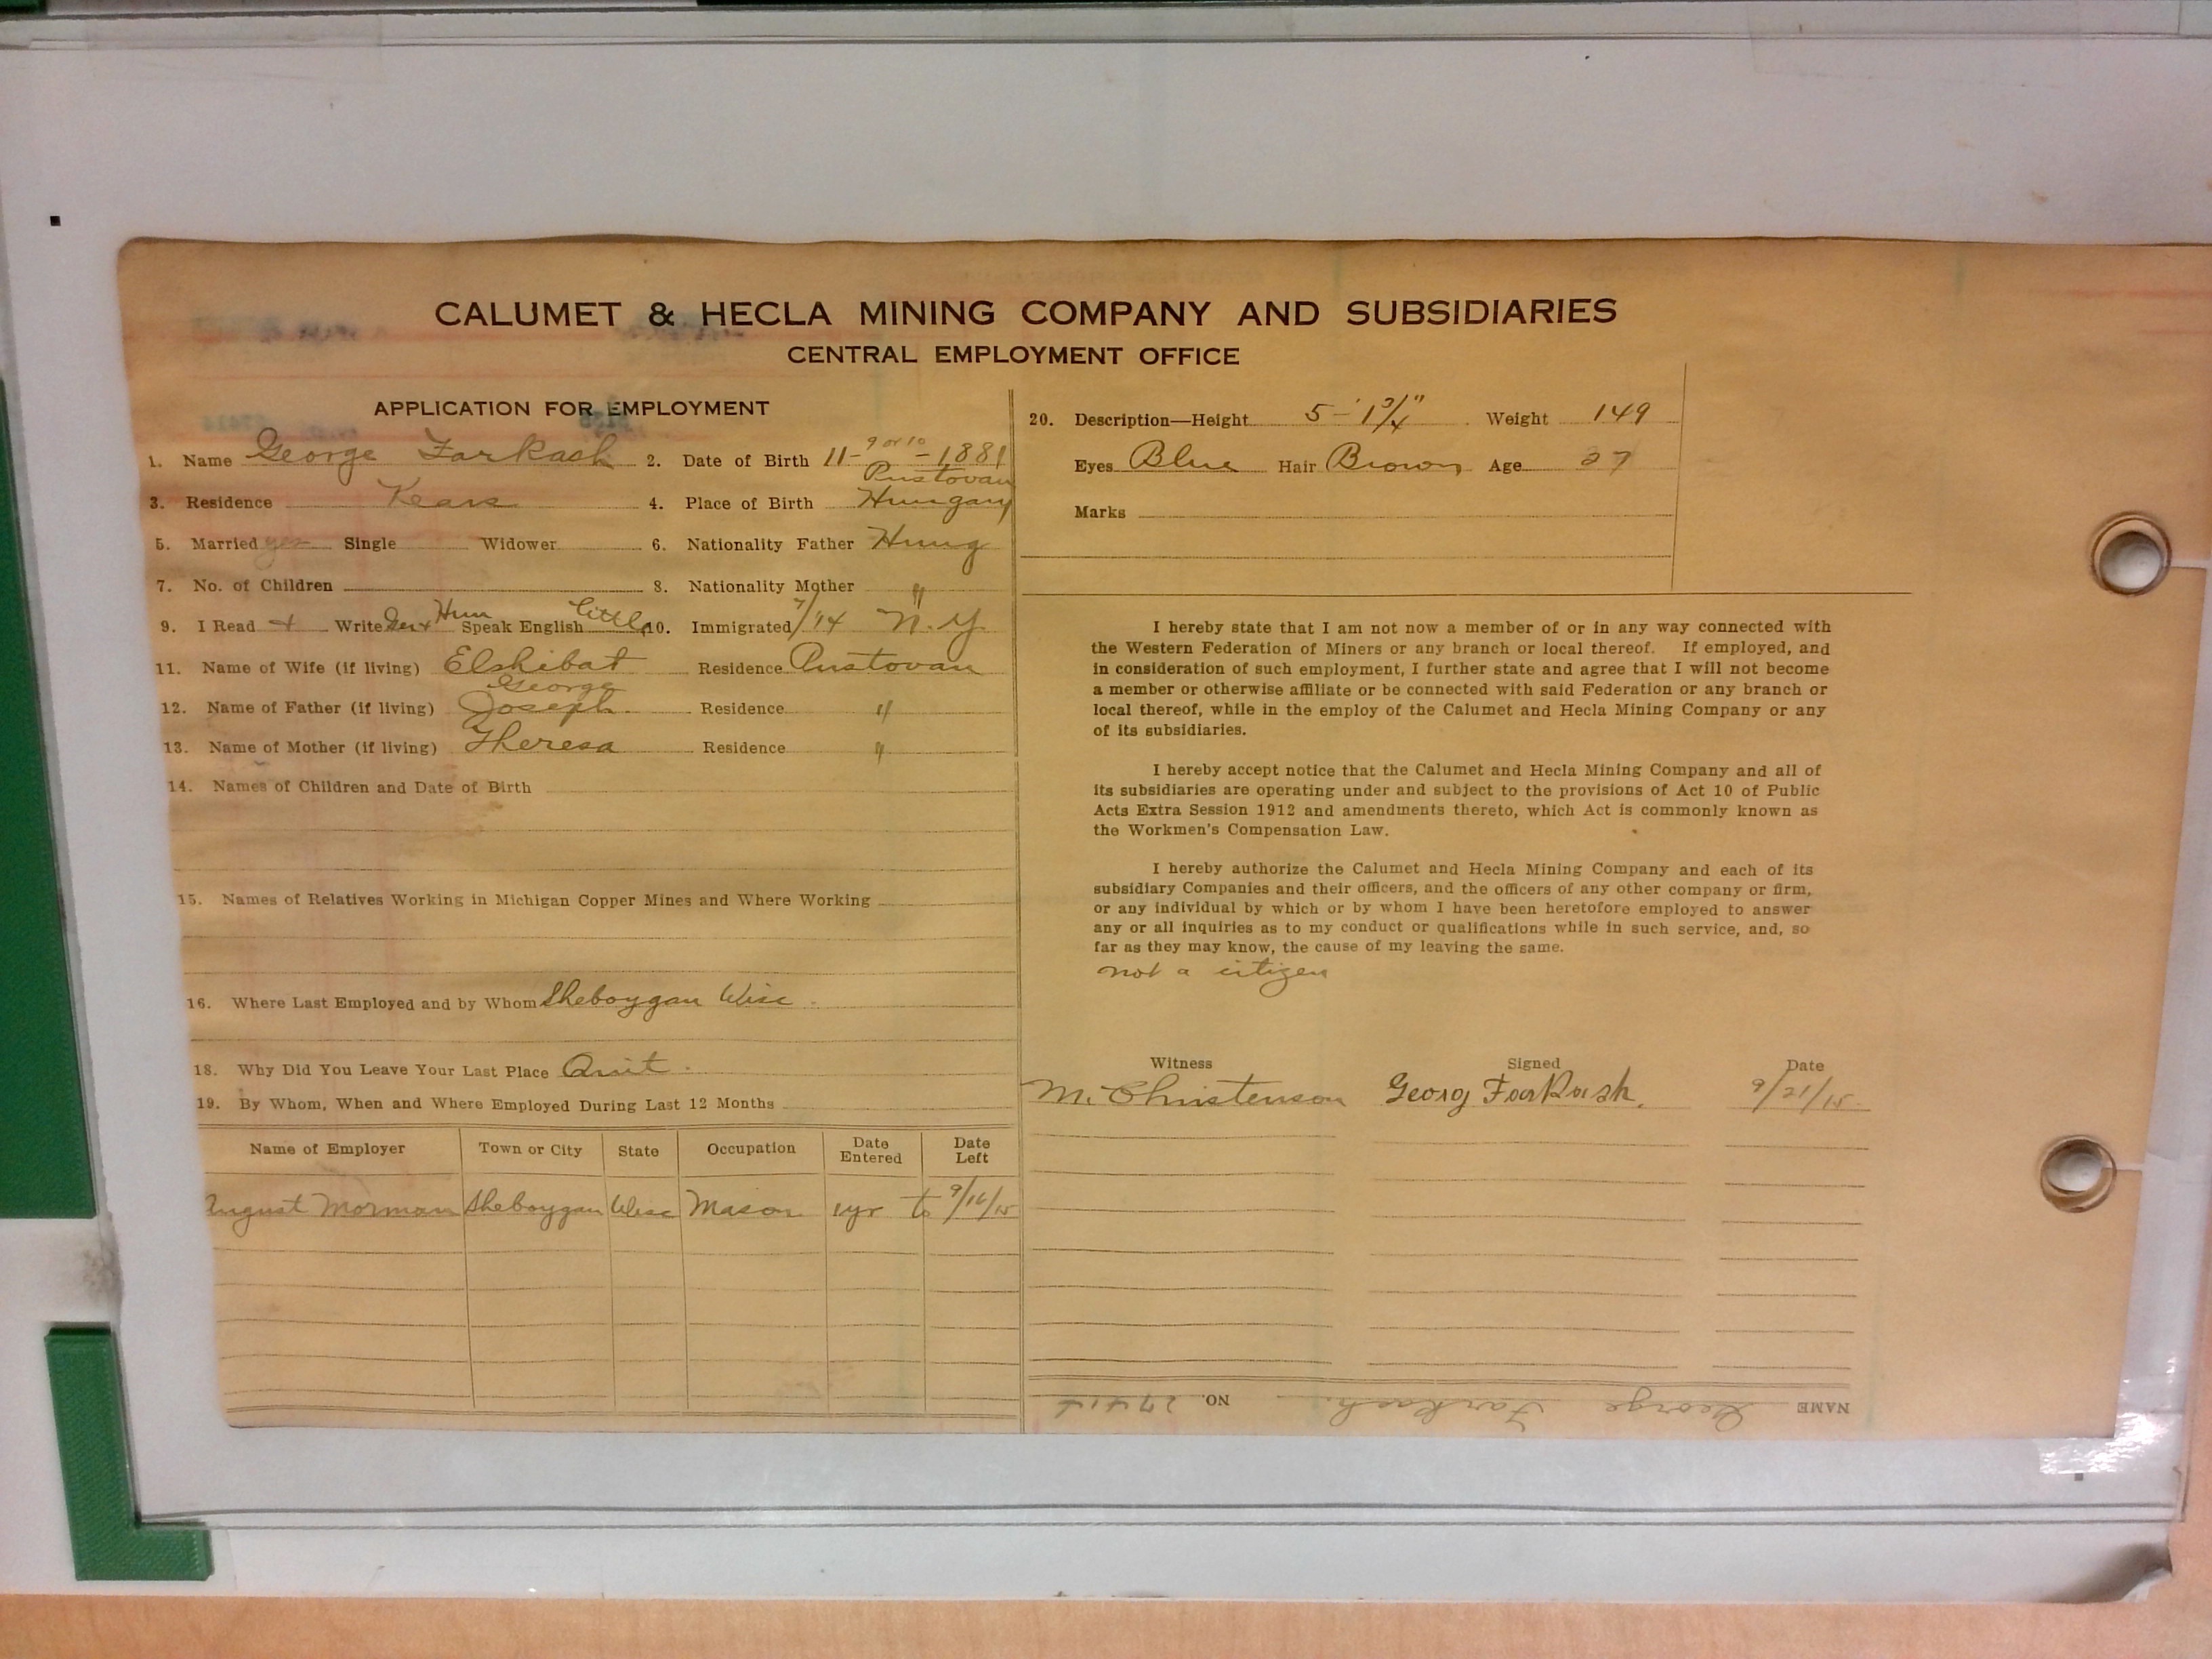 CALUMET & HECLA MINING COMPANY AND SUBSIDIARIES
CENTRAL EMPLOYMENT OFFICE
APPLICATION FOR EMPLOYMENT
1. Name George Farkash 2. Date of Birth 11- 9 or 10 - 1881
Pustovan
3. Residence Kears 4. Place of Birth Hungary
5. Married yes Single Widower 6. Nationality Father Hung
7. No. of Children 8. Nationality Mother "
9. I Read + Write Ger + Hun Speak English little 10. Immigrated 7/14 N.Y.
11. Name of Wife (if living) Elshibat Residence Pustovan
George
12. Name of Father (if living) Joseph. Residence "
13. Name of Mother (if living) Theresa Residence "
14. Names of Children and Date of Birth
15. Names of Relatives Working in Michigan Copper Mines and Where Working
16. Where Last Employed and by Whom Sheboygan Wisc.
18. Why Did You Leave Your Last Place Quit.
19. By Whom, When and Where Employed During Last 12 Months
Name of Employer Town or City State Occupation Date Entered Date Left
August Morman Sheboygan Wisc Mason 1yr to 9/16/15
20. Description—Height 5-' 1 3/4" Weight 149
Eyes Blue Hair Brown Age 37
Marks
I hereby state that I am not now a member of or in any way connected with
the Western Federation of Miners or any branch or local thereof. If employed, and
in consideration of such employment, I further state and agree that I will not become
a member or otherwise affiliate or be connected with said Federation or any branch or
local thereof, while in the employ of the Calumet and Hecla Mining Company or any
of its subsidiaries.
I hereby accept notice that the Calumet and Hecla Mining Company and all of
its subsidiaries are operating under and subject to the provisions of Act 10 of Public
Acts Extra Session 1912 and amendments thereto, which Act is commonly known as
the Workmen's Compensation Law.
I hereby authorize the Calumet and Hecla Mining Company and each of its
subsidiary Companies and their officers, and the officers of any other company or firm,
or any individual by which or by whom I have been heretofore employed to answer
any or all inquiries as to my conduct or qualifications while in such service, and, so
far as they may know, the cause of my leaving the same.
not a citizen
Witness Signed Date
M. Christenson Georg Farkash. 9/21/15
NAME George Farkash. NO. 27414